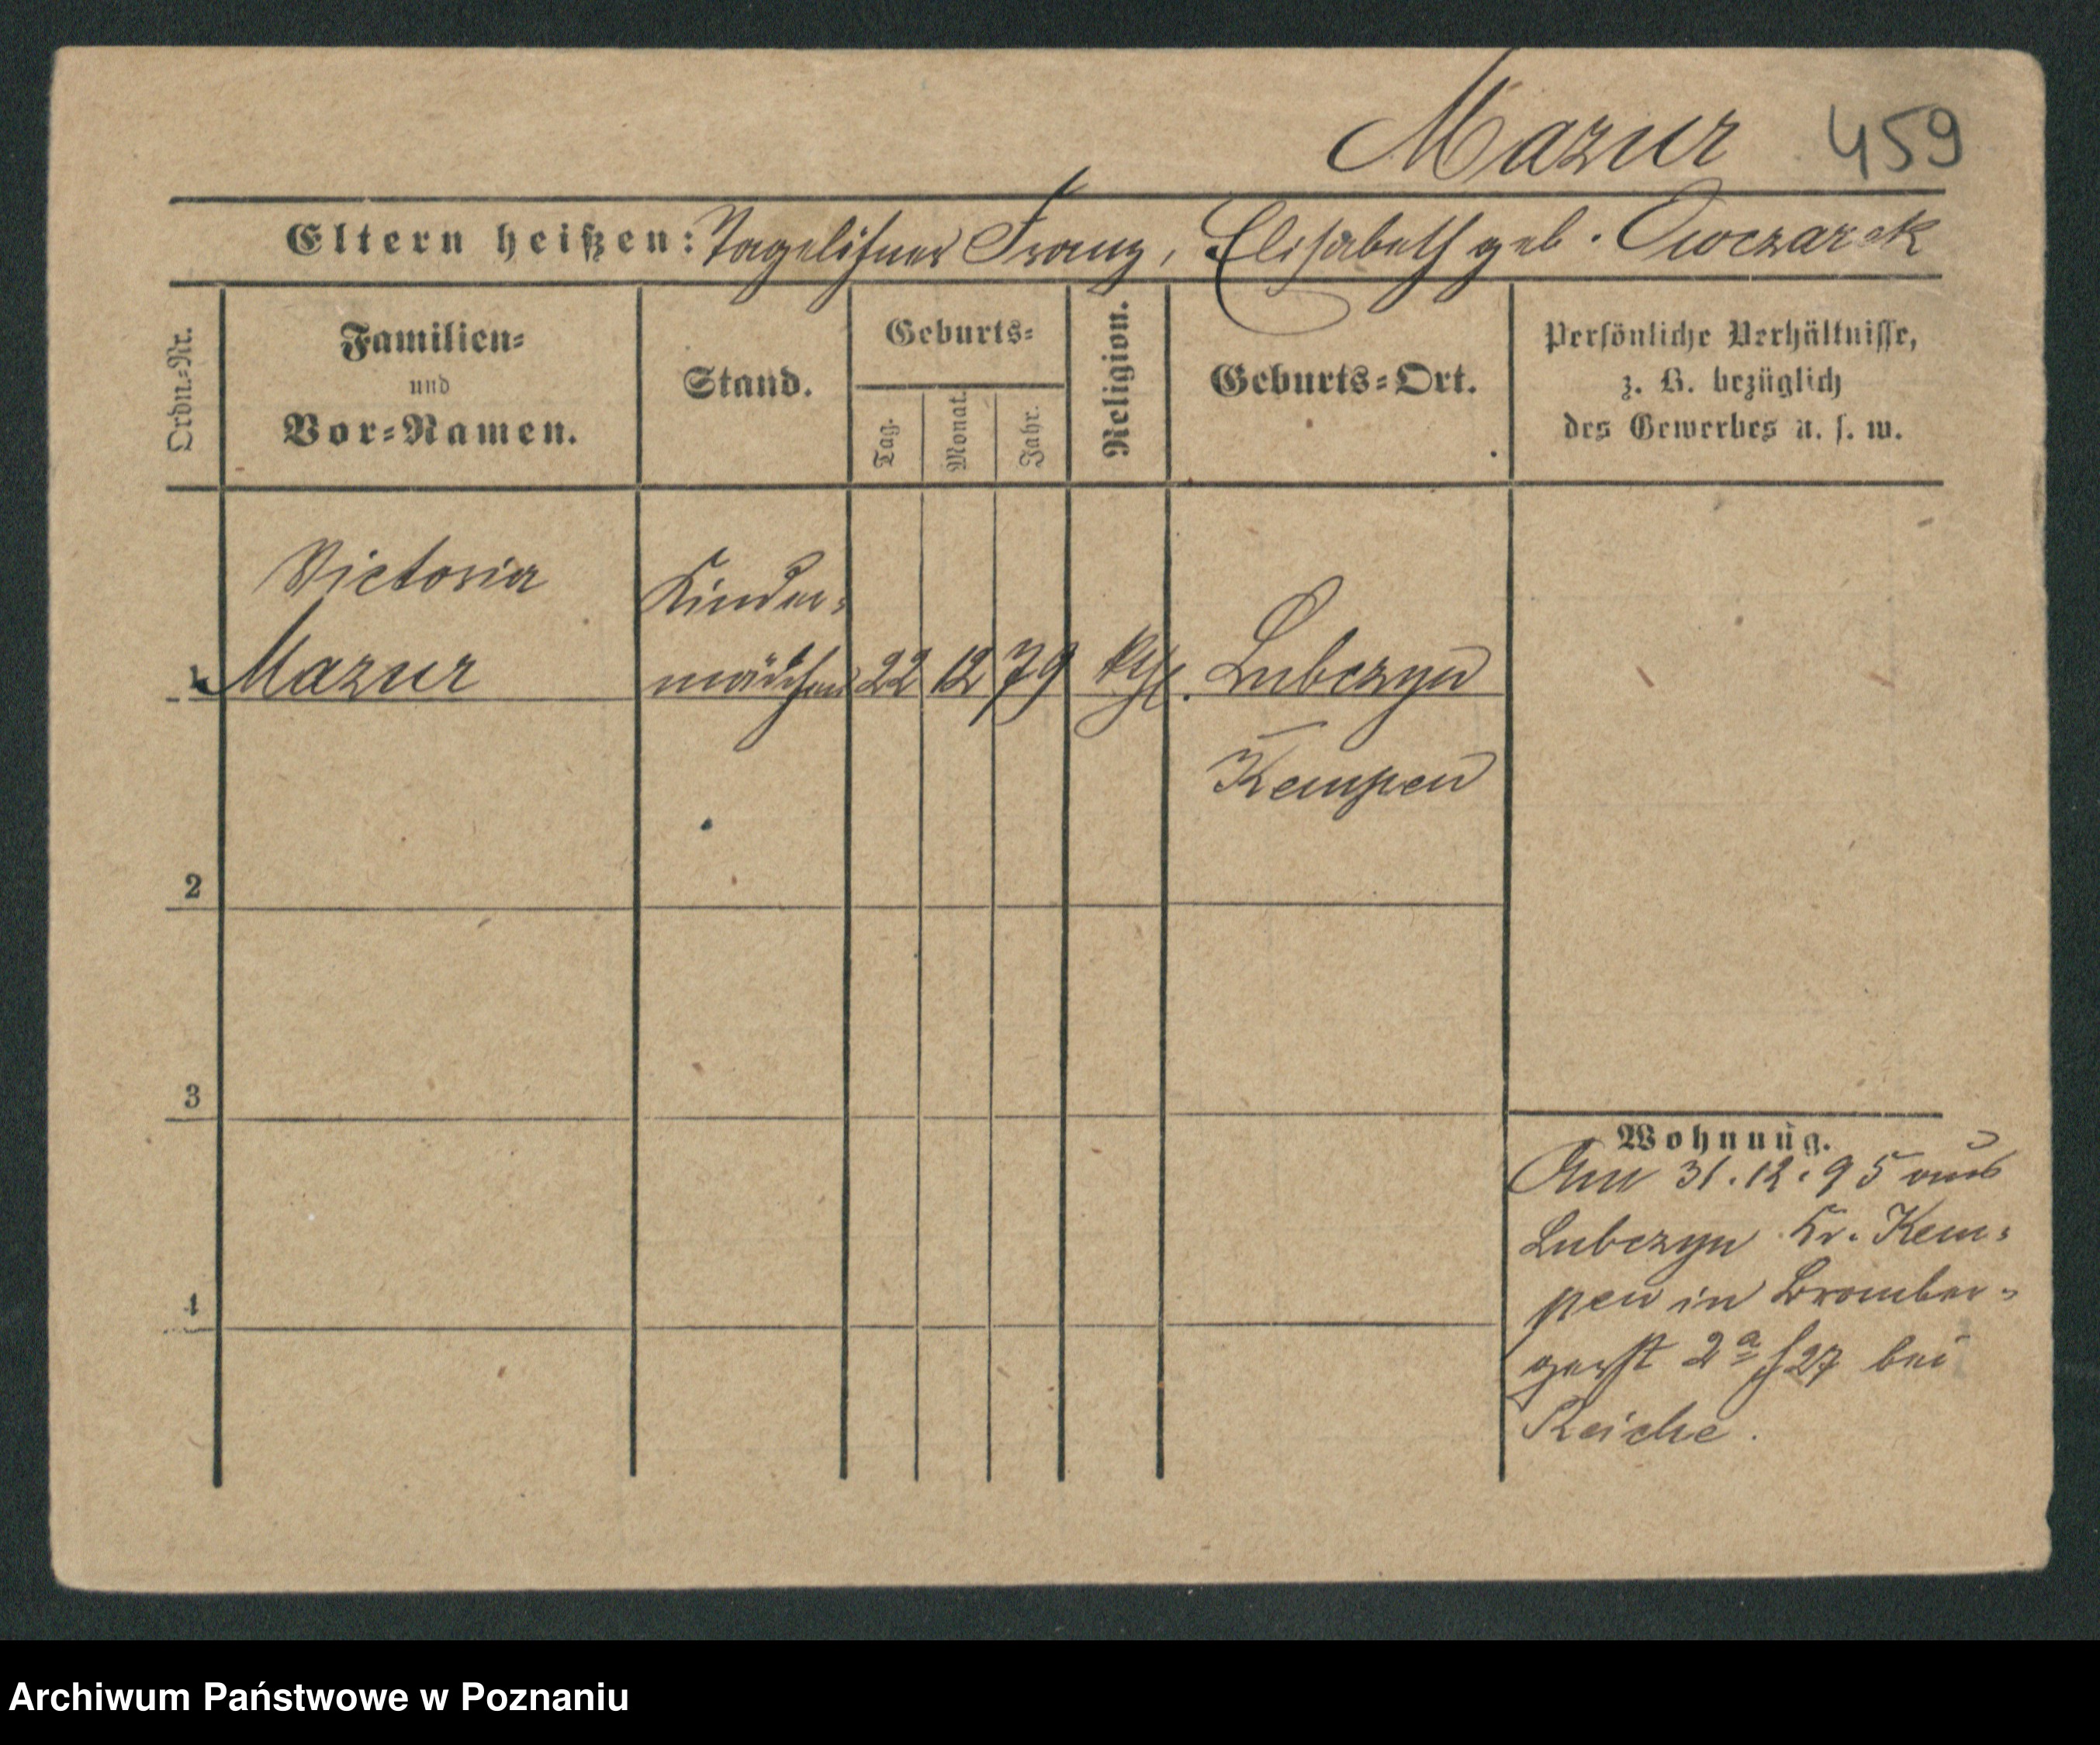 Mazur 459
Eltern heißen: Tagelöhner Franz, Elisabeth geb. Owczarek
Ordn.-Nr.
Familien-
und
Vor-Namen.
Stand.
Geburts-
Tag.
Monat.
Jahr.
Religion.
Geburts-Ort.
Persönliche Verhältnisse,
z. B. bezüglich
des Gewerbes u. s. w.
Victoria
Kinder-
1 Mazur mädchen 22 12 79 kth. Lubczyn
Kempen
2
3
4
Wohnung.
Am 31.12.95 aus
Lubczyn Kr. Kem-
pen in Bromber-
gerst 2a bei
Reiche.
Archiwum Państwowe w Poznaniu